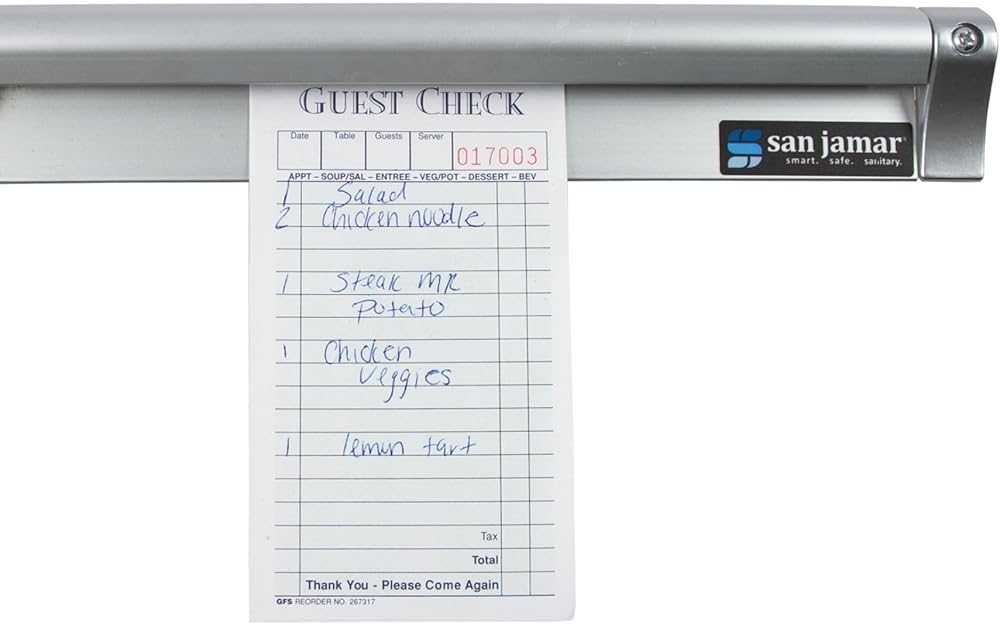 GUEST CHECK
Date Table Guests Server
017003
APPT – SOUP/SAL – ENTREE – VEG/POT – DESSERT – BEV
1 Salad
2 Chicken noodle
1 Steak MR
Potato
1 Chicken
Veggies
1 lemon tart
Tax
Total
Thank You - Please Come Again
GFS REORDER NO. 267317
san jamar
smart. safe. sanitary.